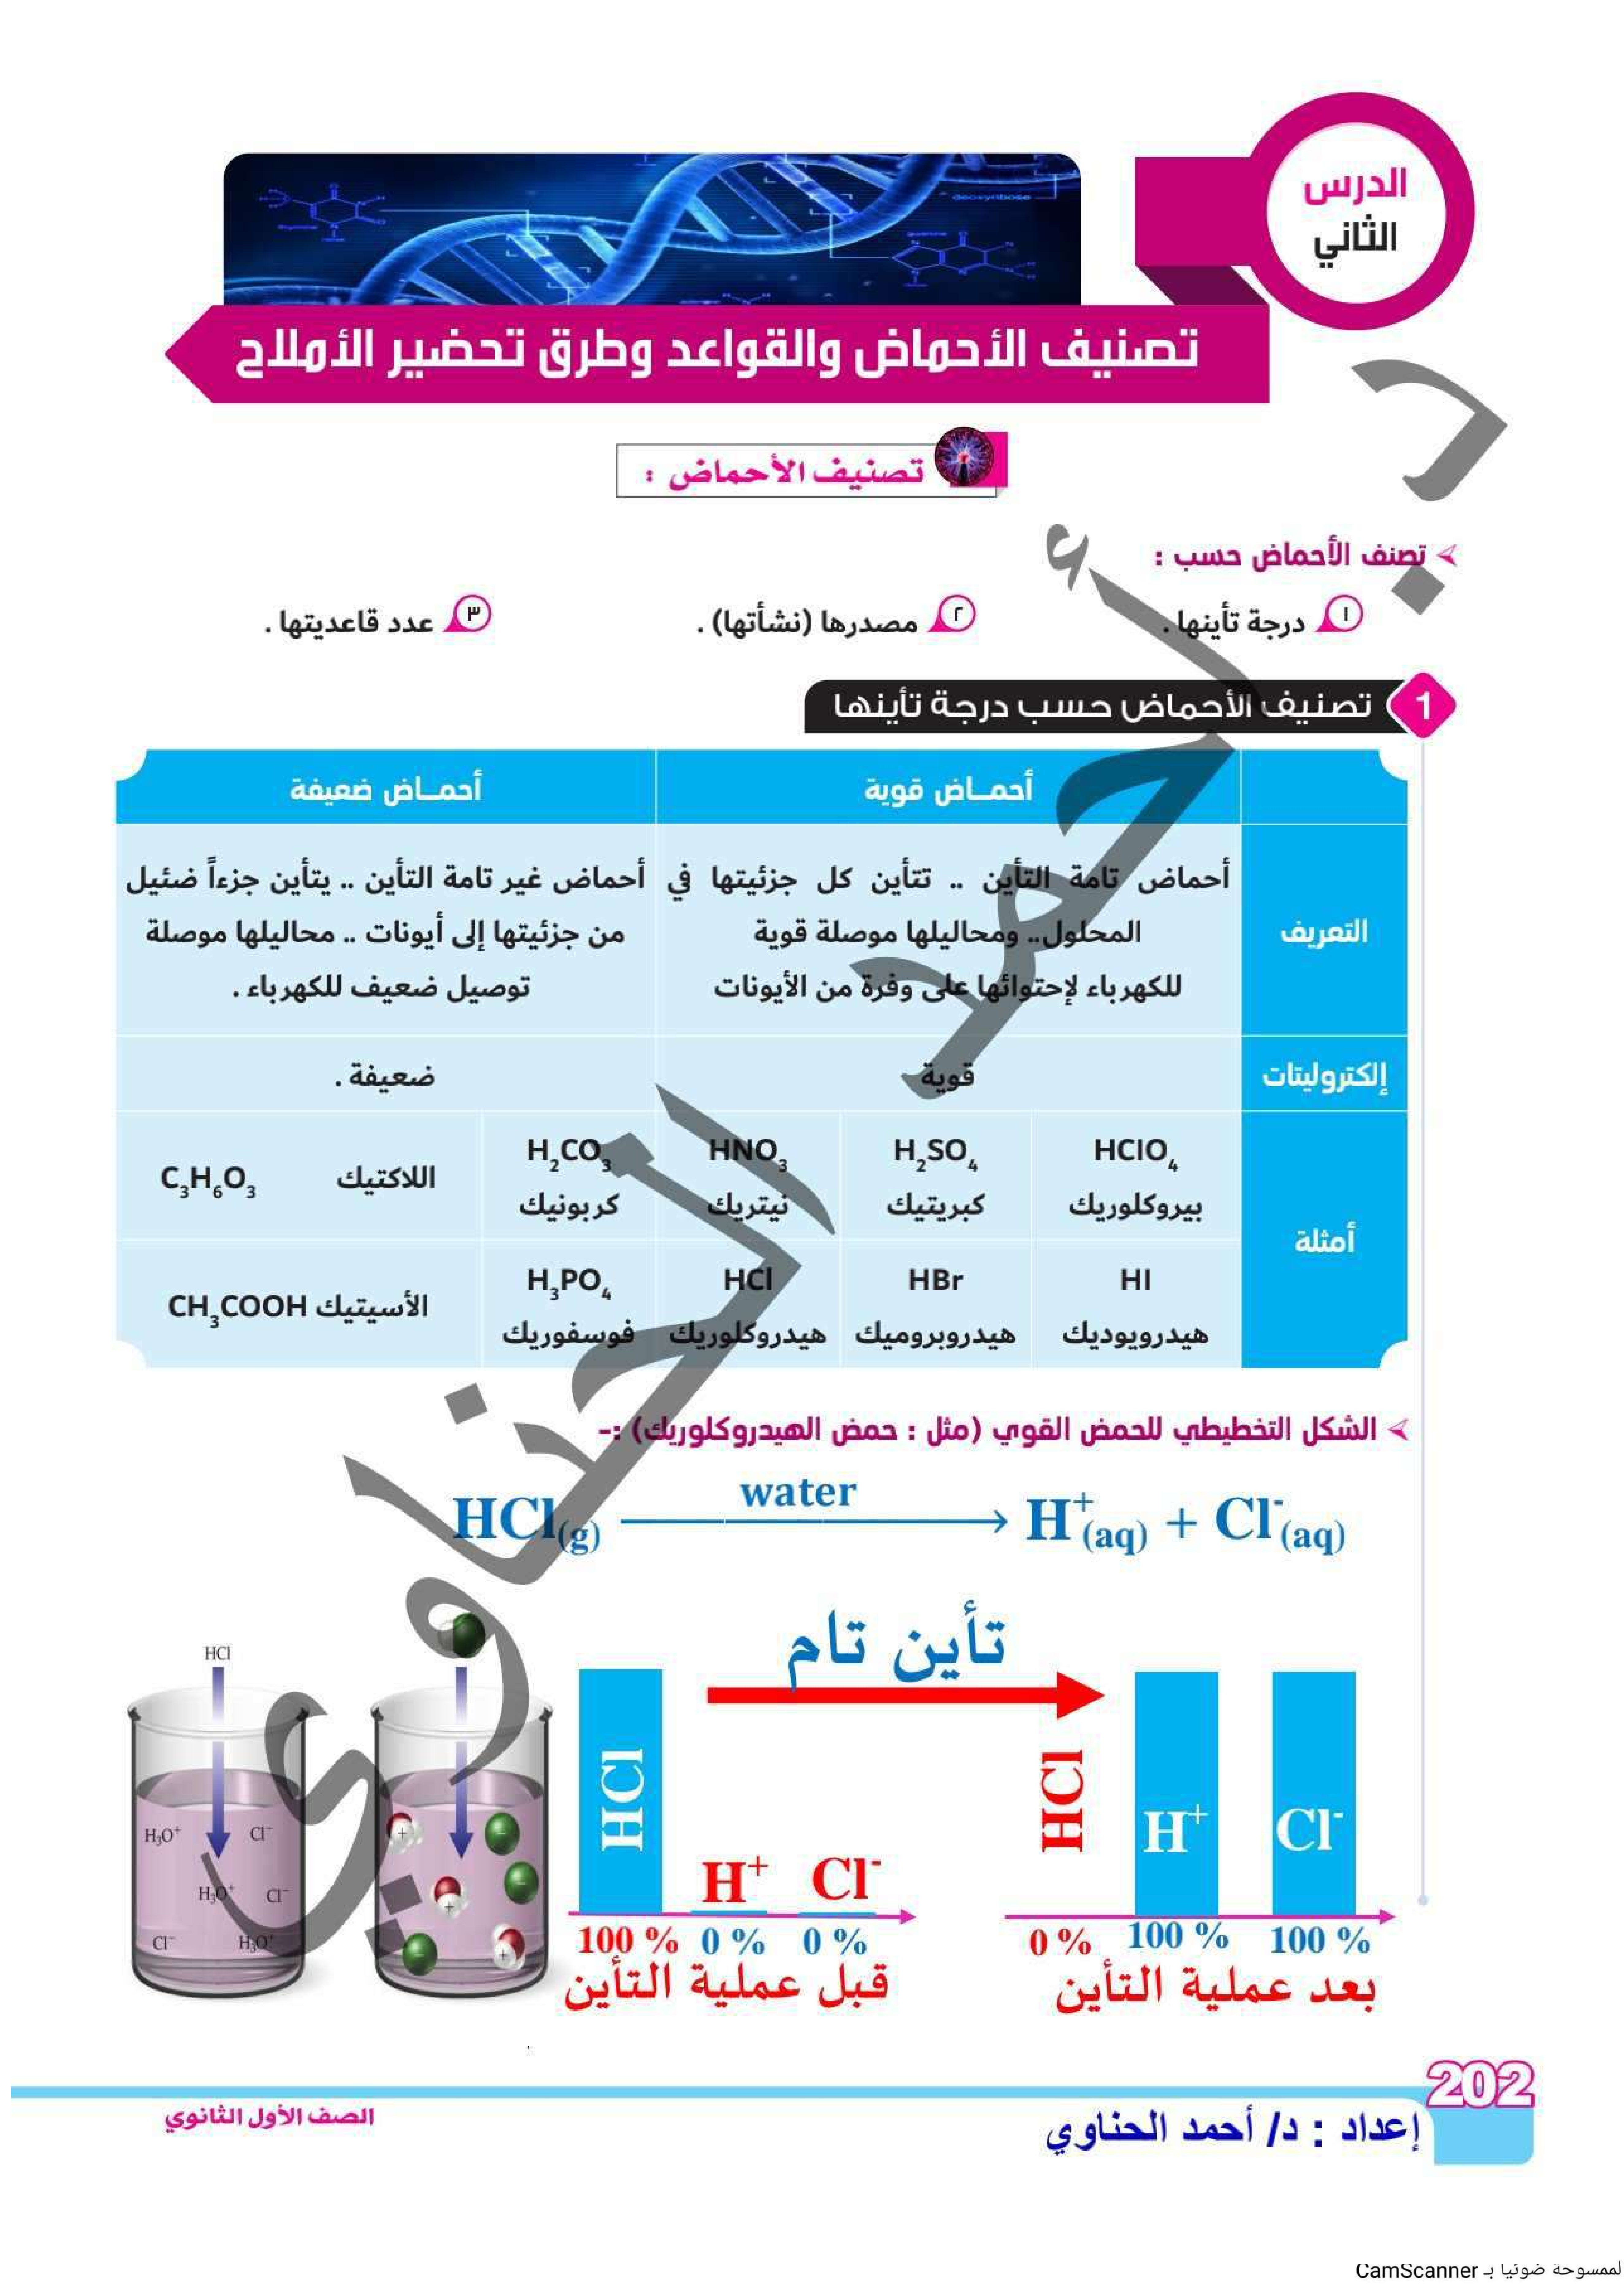 الدرس
الثاني
تصنيف الأحماض والقواعد وطرق تحضير الأملاح
تصنيف الأحماض :
تصنف الأحماض حسب :
١ درجة تأينها .
٢ مصدرها (نشأتها) .
٣ عدد قاعديتها .
1 تصنيف الأحماض حسب درجة تأينها
أحمـاض قوية
أحمـاض ضعيفة
التعريف
أحماض تامة التأين .. تتأين كل جزئيتها في
المحلول.. ومحاليلها موصلة قوية
للكهرباء لإحتوائها على وفرة من الأيونات
أحماض غير تامة التأين .. يتأين جزءاً ضئيل
من جزئيتها إلى أيونات .. محاليلها موصلة
توصيل ضعيف للكهرباء .
إلكتروليتات
قوية
ضعيفة .
أمثلة
HClO₄
بيروكلوريك
H₂SO₄
كبريتيك
HNO₃
نيتريك
H₂CO₃
كربونيك
اللاكتيك C₃H₆O₃
HI
هيدرويوديك
HBr
هيدروبروميك
HCl
هيدروكلوريك
H₃PO₄
فوسفوريك
الأسيتيك CH₃COOH
الشكل التخطيطي للحمض القوي (مثل : حمض الهيدروكلوريك) :-
water
HCl(g) ⟶ H⁺(aq) + Cl⁻(aq)
تأين تام
HCl
H₃O⁺ Cl⁻
H₃O⁺ Cl⁻
Cl⁻ H₃O⁺
HCl
H⁺ Cl⁻
100 % 0 % 0 %
قبل عملية التأين
HCl
H⁺ Cl⁻
0 % 100 % 100 %
بعد عملية التأين
202
إعداد : د/ أحمد الحناوي
الصف الأول الثانوي
د. أحمد الحناوي
الممسوحة ضوئيا بـ CamScanner